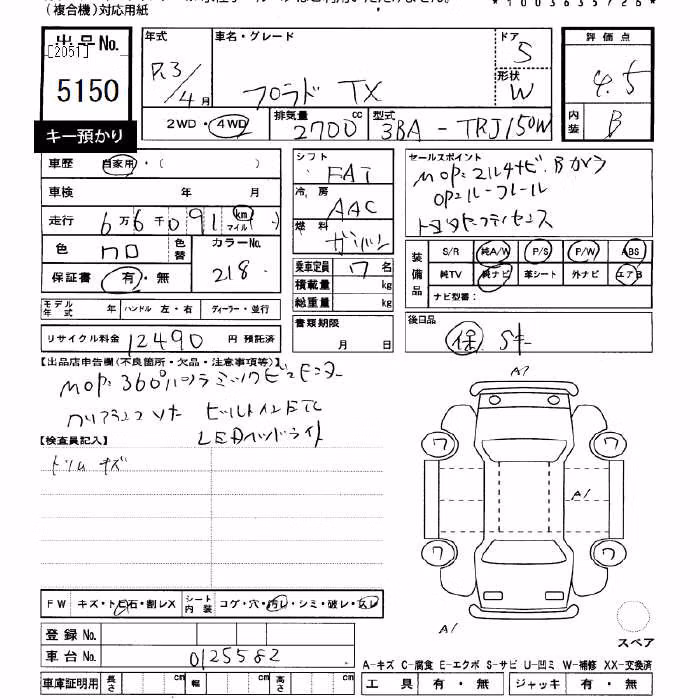 (複合機)対応用紙
*1003635726*
出品No.
[2051]
5150
キー預かり
年式
R3/4月
車名・グレード
プラド TX
ドア
5
形状
W
評価点
4.5
内装
B
2WD・4WD
排気量
2700cc
型式
3BA-TRJ150W
車歴 自家用・( )
車検 年 月
走行 6万6千091 km マイル
色 クロ 色替
カラーNo. 218
保証書 有・無
シフト
FAT
冷房
AAC
燃料
ガソリン
乗車定員 7名
積載量 kg
総重量 kg
書類期限
月 日
セールスポイント
MOP:マルチナビ.Bカメラ
OP:ルーフレール
トヨタセーフティセンス
装備品
S/R 純A/W P/S P/W ABS
純TV 純ナビ 革シート 外ナビ エアB
ナビ型番:
モデル年式 年 ハンドル 左・右 ディーラー・並行
リサイクル料金 12490円 預託済
後日品
保 Sキー
【出品店申告欄(不良箇所・欠品・注意事項等)】
MOP:360°パノラミックビューモニター
クリアランスソナー ビルトインETC
LEDヘッドライト
【検査員記入】
トリム キズ
A7
ワ ワ
A1
ワ ワ
A1
スペア
FW キズ・トビ石・割レX シート内装 コゲ・穴・汚レ・シミ・破レ・スレ
登録No.
車台No. 0125582
A-キズ C-腐食 E-エクボ S-サビ U-凹ミ W-補修 XX-交換済
車庫証明用 長さ cm 幅 cm 高さ cm
工具 有・無 ジャッキ 有・無